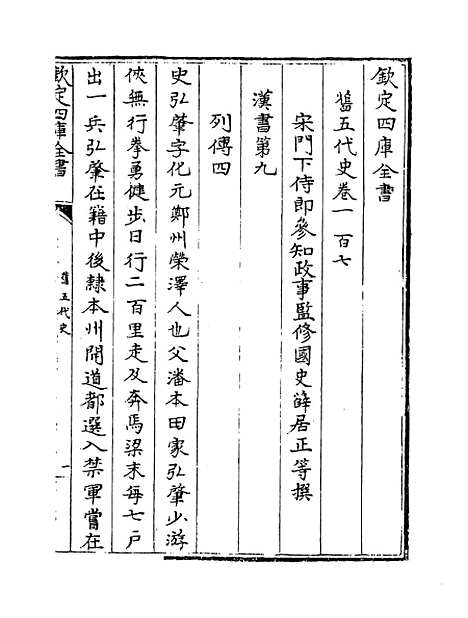 欽定四庫全書
舊五代史卷一百七
宋門下侍郎參知政事監修國史薛居正等撰
漢書第九
列傳四
史弘肇字化元鄭州榮澤人也父潘本田家弘肇少游
俠無行拳勇健步日行二百里走及奔馬梁末每七戶
出一兵弘肇在籍中後隸本州開道都選入禁軍嘗在
欽定四庫全書
舊五代史
一